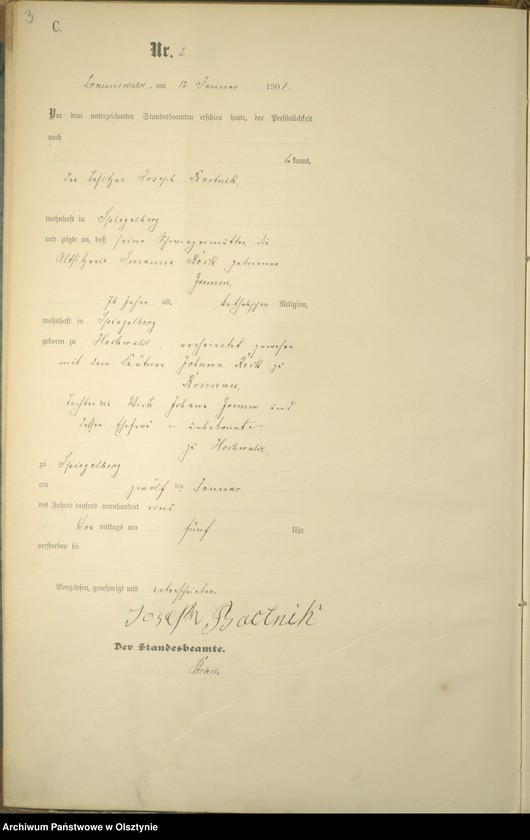 3
C.
Nr. 2
am 12 Januar 1901.
Vor dem unterzeichneten Standesbeamten erschien heute, der Persönlichkeit
nach
bekannt,
der Besitzer Joseph Bartnik,
wohnhaft in Spiegelberg
und zeigte an, daß seine Schwiegermutter die
Altsitzerin Susanna geborene
76 Jahre alt, katholischer Religion,
wohnhaft in Spiegelberg
geboren zu Hochwalde, verheirathet gewesen
mit dem Johann zu
Rosenau,
Tochter des Wirth Johann und
dessen Ehefrau unbekannt
zu Hochwalde,
zu Spiegelberg
am zwölften Januar
des Jahres tausend neunhundert eins
Vor mittags um fünf Uhr
verstorben sei
Vorgelesen, genehmigt und unterschrieben.
Joseph Bartnik
Der Standesbeamte.
Archiwum Państwowe w Olsztynie